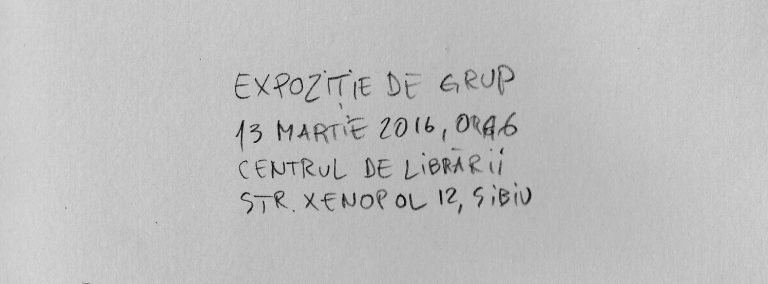 EXPOZIȚIE DE GRUP
13 MARTIE 2016, ORA 6
CENTRUL DE LIBRĂRII
STR. XENOPOL 12, SIBIU